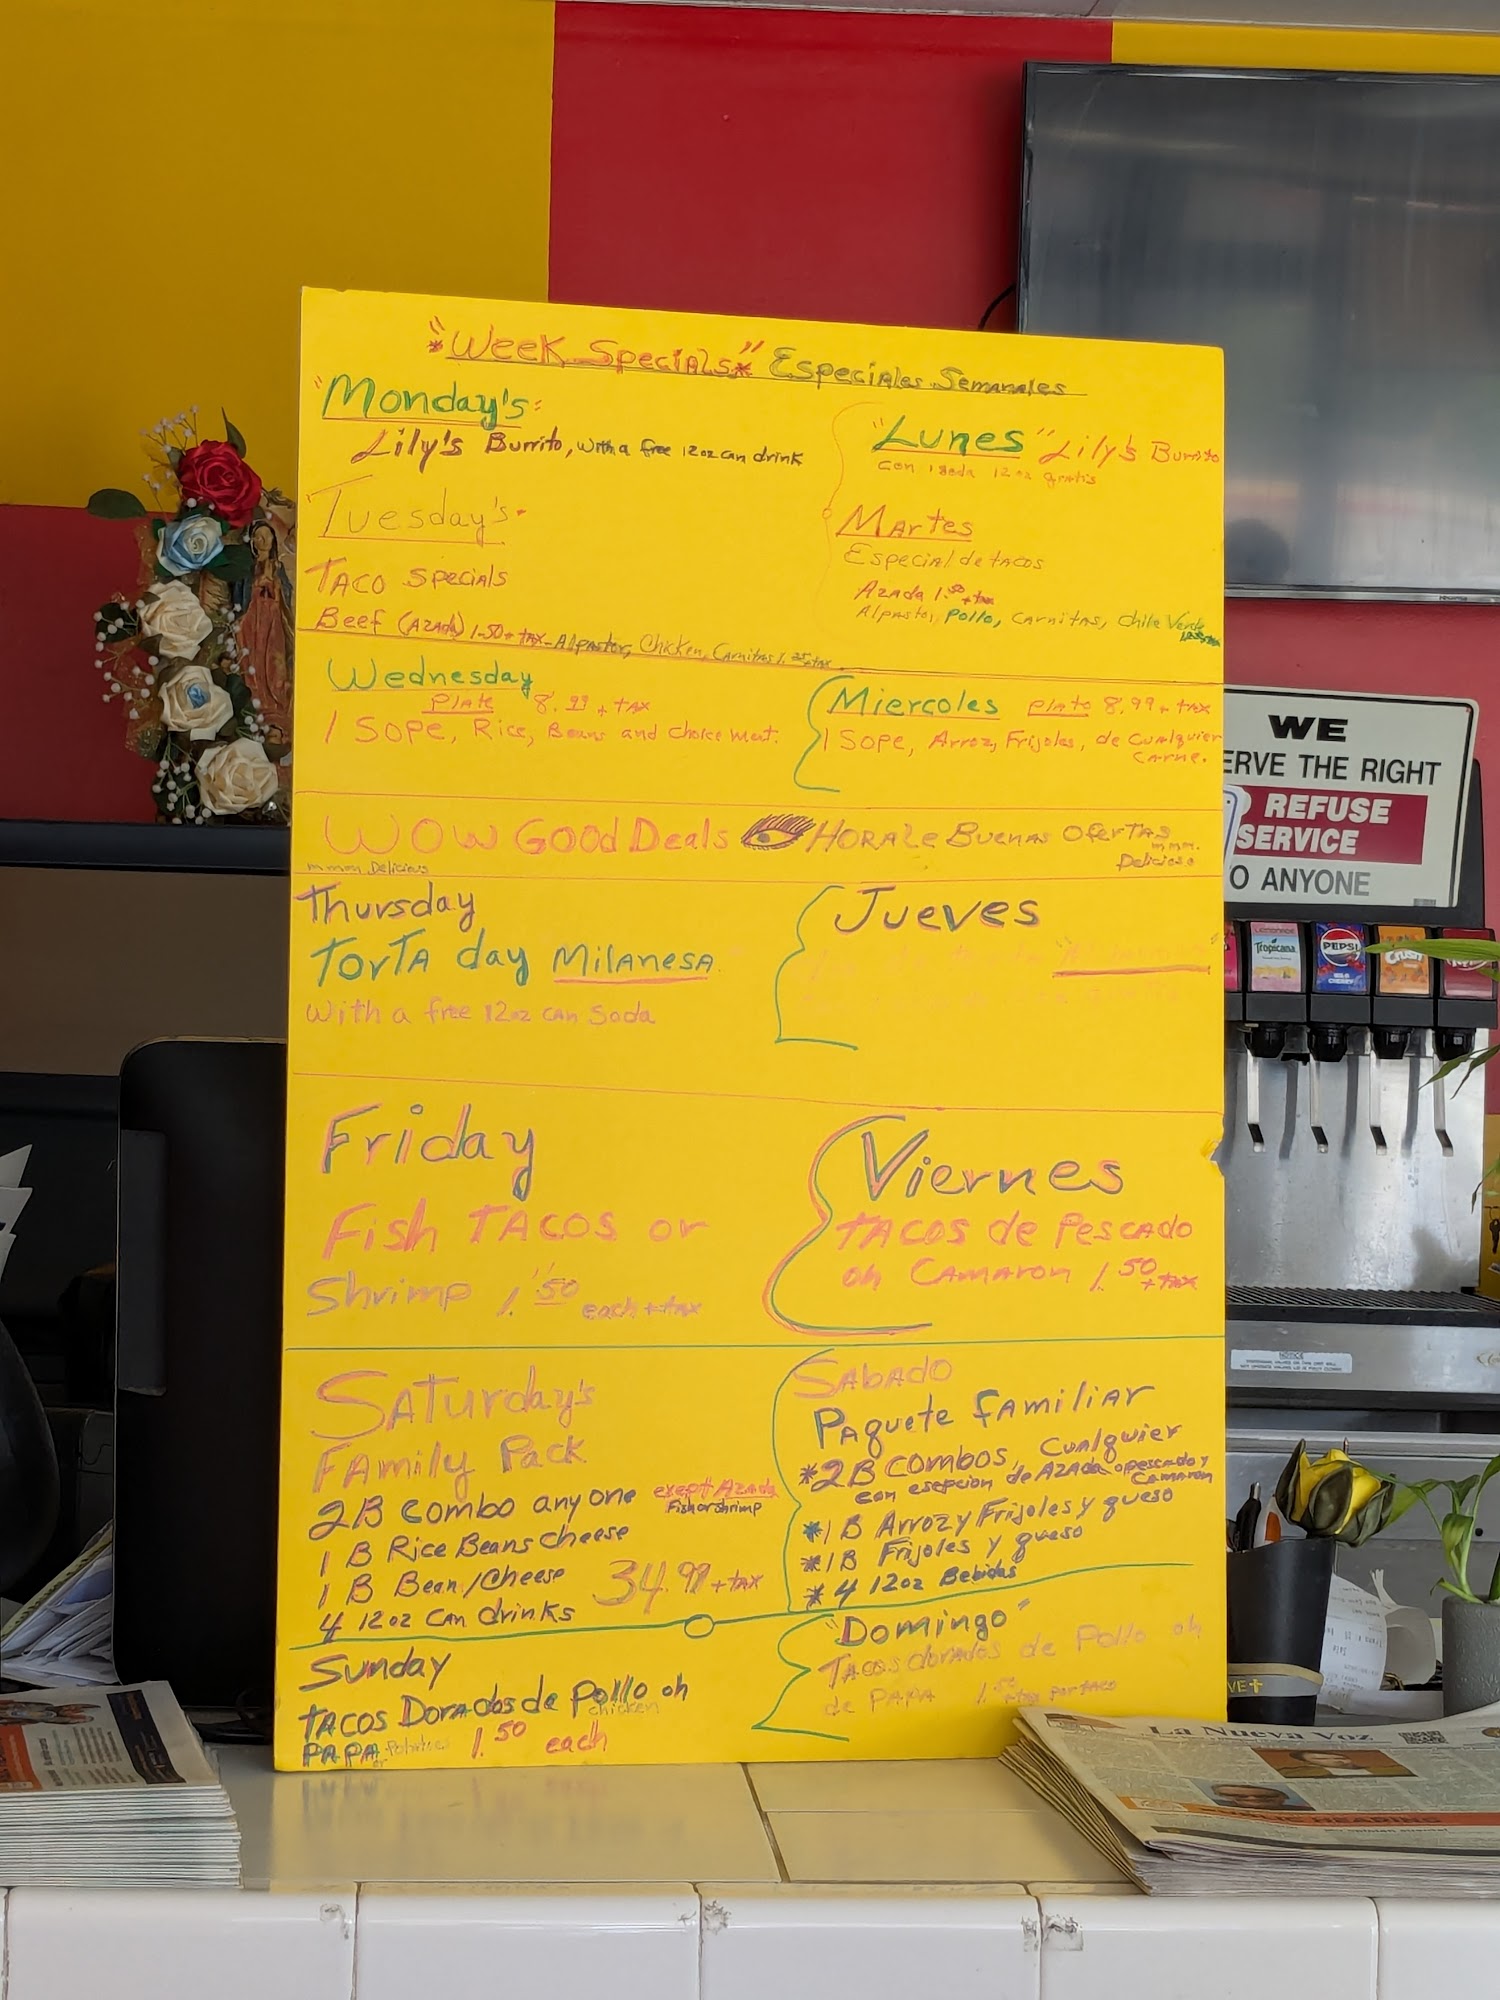 "Week Specials" Especiales Semanales
"Monday's:
Lily's Burrito, with a free 12oz can drink
"Lunes" Lily's Burrito
con 1 soda 12 oz gratis
"Tuesday's-
Taco Specials
Beef (Azada) 1.50 + tax - Alpastor, Chicken, Carnitas 1.25 + tax
Martes
Especial de tacos
Azada 1.50 + tax
Alpastor, Pollo, Carnitas, Chile Verde
Wednesday
Plate 8.99 + tax
1 Sope, Rice, Beans and choice meat.
Miercoles plato 8.99 + tax
1 Sope, Arroz, Frijoles, de Cualquier
Carne.
WOW Good Deals HORALE Buenas Ofertas
mmm Delicious
mmm.
Delicioso
Thursday
Torta day Milanesa
With a free 12oz can Soda
Jueves
Friday
Fish Tacos or
Shrimp 1.50 each + tax
Viernes
Tacos de Pescado
oh Camaron 1.50 + tax
Saturday's
Family Pack
2B combo anyone exept Azada
Fish or shrimp
1 B Rice Beans Cheese
1 B Bean/Cheese
34.99 + tax
4 12oz Can drinks
Sabado
Paquete familiar
*2B combos, Cualquier
con esepcion de Azada o pescado y
Camaron
*1 B Arroz y Frijoles y queso
*1B Frijoles y queso
*4 12oz Bebidas
Sunday
Tacos Dorados de Pollo oh
chicken
PAPA Potatoes 1.50 each
"Domingo"
Tacos dorados de Pollo oh
de PAPA 1.50 + tax por taco
WE
ERVE THE RIGHT
REFUSE
SERVICE
O ANYONE
LEMONADE
Tropicana
PEPSI
WILD CHERRY
Crush
NOTICE
VE
La Nueva Voz
HEARING